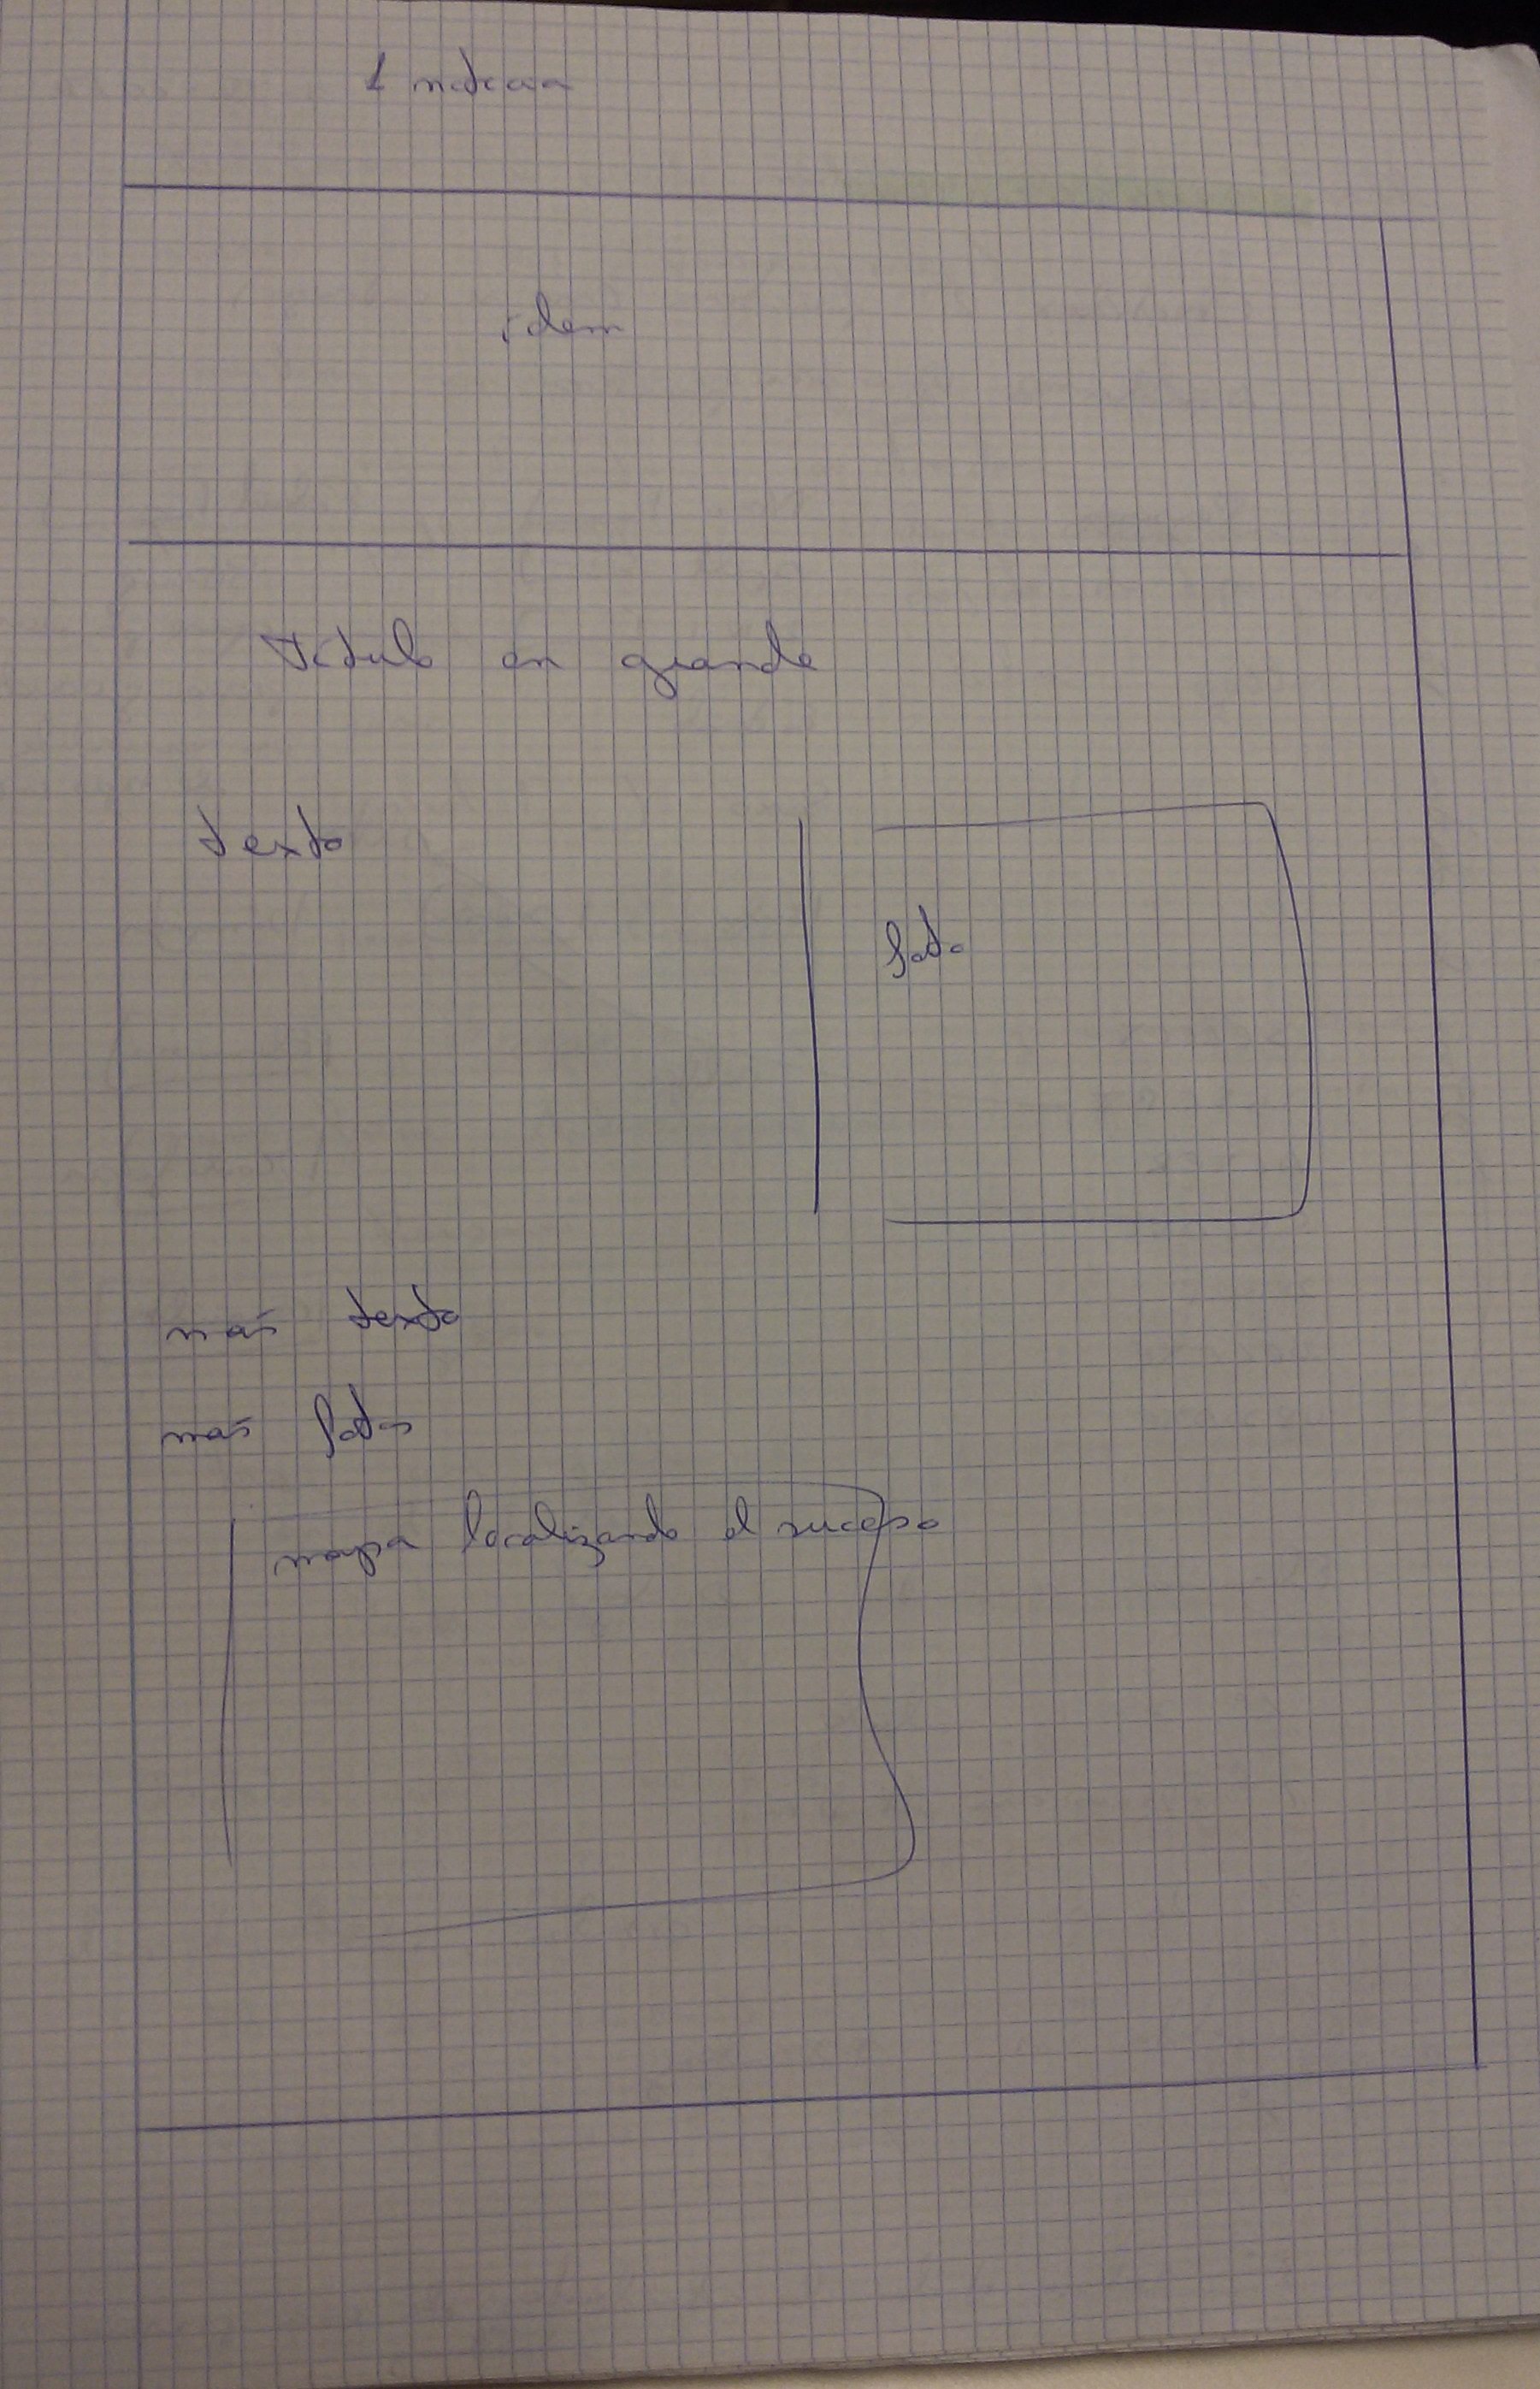 1 noticia
idem
Titulo en grande
texto
foto
más texto
más fotos
mapa localizando el suceso